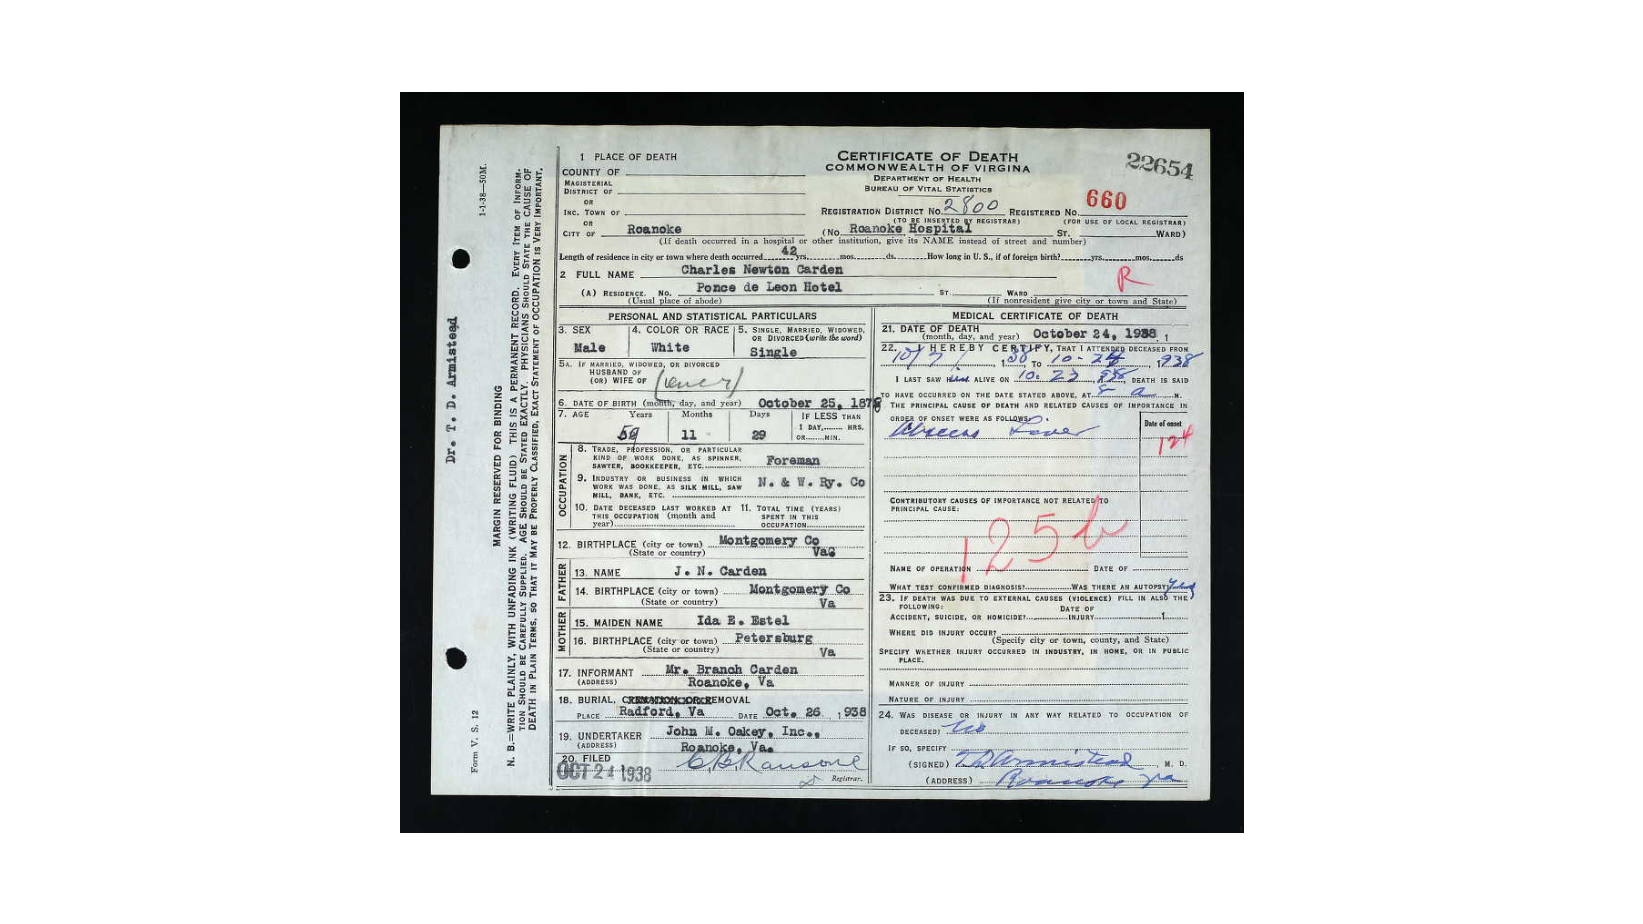 1 PLACE OF DEATH
COUNTY OF
MAGISTERIAL
DISTRICT OF
OR
INC. TOWN OF
OR
CITY OF Roanoke
CERTIFICATE OF DEATH
COMMONWEALTH OF VIRGINIA
DEPARTMENT OF HEALTH
BUREAU OF VITAL STATISTICS
22654
REGISTRATION DISTRICT No. 2800 REGISTERED No. 660
(TO BE INSERTED BY REGISTRAR) (FOR USE OF LOCAL REGISTRAR)
(No. Roanoke Hospital ST. WARD)
(If death occurred in a hospital or other institution, give its NAME instead of street and number)
Length of residence in city or town where death occurred 42 yrs. mos. ds. How long in U. S., if of foreign birth? yrs. mos. ds
2 FULL NAME Charles Newton Carden
R
(A) RESIDENCE. No. Ponce de Leon Hotel ST. WARD
(Usual place of abode) (If nonresident give city or town and State)
PERSONAL AND STATISTICAL PARTICULARS
3. SEX
Male
4. COLOR OR RACE
White
5. SINGLE, MARRIED, WIDOWED,
OR DIVORCED (write the word)
Single
5A. IF MARRIED, WIDOWED, OR DIVORCED
HUSBAND OF
(OR) WIFE OF
6. DATE OF BIRTH (month, day, and year) October 25, 1878
7. AGE Years Months Days IF LESS THAN
1 DAY, HRS.
OR MIN.
59 11 29
OCCUPATION
8. TRADE, PROFESSION, OR PARTICULAR
KIND OF WORK DONE, AS SPINNER,
SAWYER, BOOKKEEPER, ETC. Foreman
9. INDUSTRY OR BUSINESS IN WHICH
WORK WAS DONE, AS SILK MILL, SAW
MILL, BANK, ETC. N. & W. Ry. Co
10. DATE DECEASED LAST WORKED AT
THIS OCCUPATION (month and
year)
11. TOTAL TIME (YEARS)
SPENT IN THIS
OCCUPATION
12. BIRTHPLACE (city or town) Montgomery Co
(State or country) Va
FATHER
13. NAME J. N. Carden
14. BIRTHPLACE (city or town) Montgomery Co
(State or country) Va
MOTHER
15. MAIDEN NAME Ida E. Estel
16. BIRTHPLACE (city or town) Petersburg
(State or country) Va
17. INFORMANT Mr. Branch Carden
(ADDRESS) Roanoke, Va
18. BURIAL, CREMATION OR REMOVAL
PLACE Radford, Va DATE Oct. 26, 1938
19. UNDERTAKER John M. Oakey, Inc.,
(ADDRESS) Roanoke, Va.
20. FILED
OCT 24 1938 C. B. Ransone
Registrar.
MEDICAL CERTIFICATE OF DEATH
21. DATE OF DEATH
(month, day, and year) October 24, 1938
22. I HEREBY CERTIFY, THAT I ATTENDED DECEASED FROM
10/7/, 1938 TO 10-24, 1938
I LAST SAW him ALIVE ON 10-23, 1938, DEATH IS SAID
TO HAVE OCCURRED ON THE DATE STATED ABOVE, AT 8 a M.
THE PRINCIPAL CAUSE OF DEATH AND RELATED CAUSES OF IMPORTANCE IN
ORDER OF ONSET WERE AS FOLLOWS:
Date of onset
Abscess Liver
124
CONTRIBUTORY CAUSES OF IMPORTANCE NOT RELATED TO
PRINCIPAL CAUSE:
125b
NAME OF OPERATION DATE OF
WHAT TEST CONFIRMED DIAGNOSIS? WAS THERE AN AUTOPSY? Yes
23. IF DEATH WAS DUE TO EXTERNAL CAUSES (VIOLENCE) FILL IN ALSO THE
FOLLOWING:
DATE OF
ACCIDENT, SUICIDE, OR HOMICIDE? INJURY 1
WHERE DID INJURY OCCUR?
(Specify city or town, county, and State)
SPECIFY WHETHER INJURY OCCURRED IN INDUSTRY, IN HOME, OR IN PUBLIC
PLACE.
MANNER OF INJURY
NATURE OF INJURY
24. WAS DISEASE OR INJURY IN ANY WAY RELATED TO OCCUPATION OF
DECEASED? No
IF SO, SPECIFY
(SIGNED) T D Armistead, M. D.
(ADDRESS) Roanoke Va
Dr. T. D. Armistead
1-1-38—50M.
Form V. S. 12
MARGIN RESERVED FOR BINDING
N. B.—WRITE PLAINLY, WITH UNFADING INK (WRITING FLUID) THIS IS A PERMANENT RECORD. EVERY ITEM OF INFORM-
TION SHOULD BE CAREFULLY SUPPLIED. AGE SHOULD BE STATED EXACTLY. PHYSICIANS SHOULD STATE THE CAUSE OF
DEATH IN PLAIN TERMS, SO THAT IT MAY BE PROPERLY CLASSIFIED. EXACT STATEMENT OF OCCUPATION IS VERY IMPORTANT.